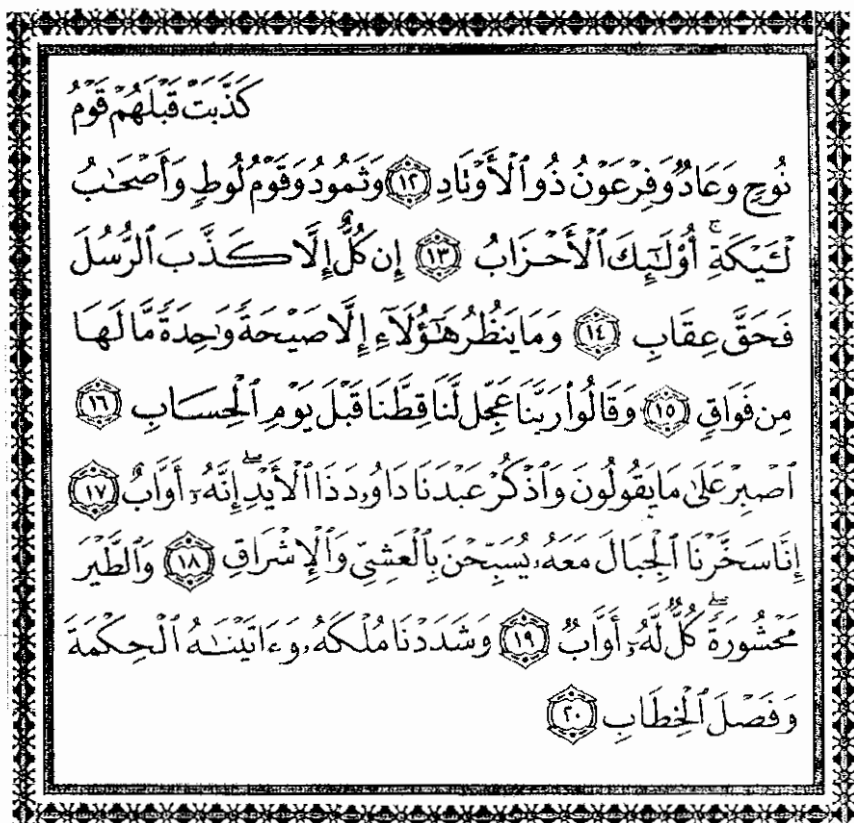 كَذَّبَتْ قَبْلَهُمْ قَوْمُ
نُوحٍ وَعَادٌ وَفِرْعَوْنُ ذُو ٱلْأَوْتَادِ ١٢ وَثَمُودُ وَقَوْمُ لُوطٍ وَأَصْحَٰبُ
لْـَٔيْكَةِ ۚ أُو۟لَٰٓئِكَ ٱلْأَحْزَابُ ١٣ إِن كُلٌّ إِلَّا كَذَّبَ ٱلرُّسُلَ
فَحَقَّ عِقَابِ ١٤ وَمَا يَنظُرُ هَٰٓؤُلَآءِ إِلَّا صَيْحَةً وَٰحِدَةً مَّا لَهَا
مِن فَوَاقٍ ١٥ وَقَالُوا۟ رَبَّنَا عَجِّل لَّنَا قِطَّنَا قَبْلَ يَوْمِ ٱلْحِسَابِ ١٦
ٱصْبِرْ عَلَىٰ مَا يَقُولُونَ وَٱذْكُرْ عَبْدَنَا دَاوُۥدَ ذَا ٱلْأَيْدِ ۖ إِنَّهُۥٓ أَوَّابٌ ١٧
إِنَّا سَخَّرْنَا ٱلْجِبَالَ مَعَهُۥ يُسَبِّحْنَ بِٱلْعَشِىِّ وَٱلْإِشْرَاقِ ١٨ وَٱلطَّيْرَ
مَحْشُورَةً ۖ كُلٌّ لَّهُۥٓ أَوَّابٌ ١٩ وَشَدَدْنَا مُلْكَهُۥ وَءَاتَيْنَٰهُ ٱلْحِكْمَةَ
وَفَصْلَ ٱلْخِطَابِ ٢٠